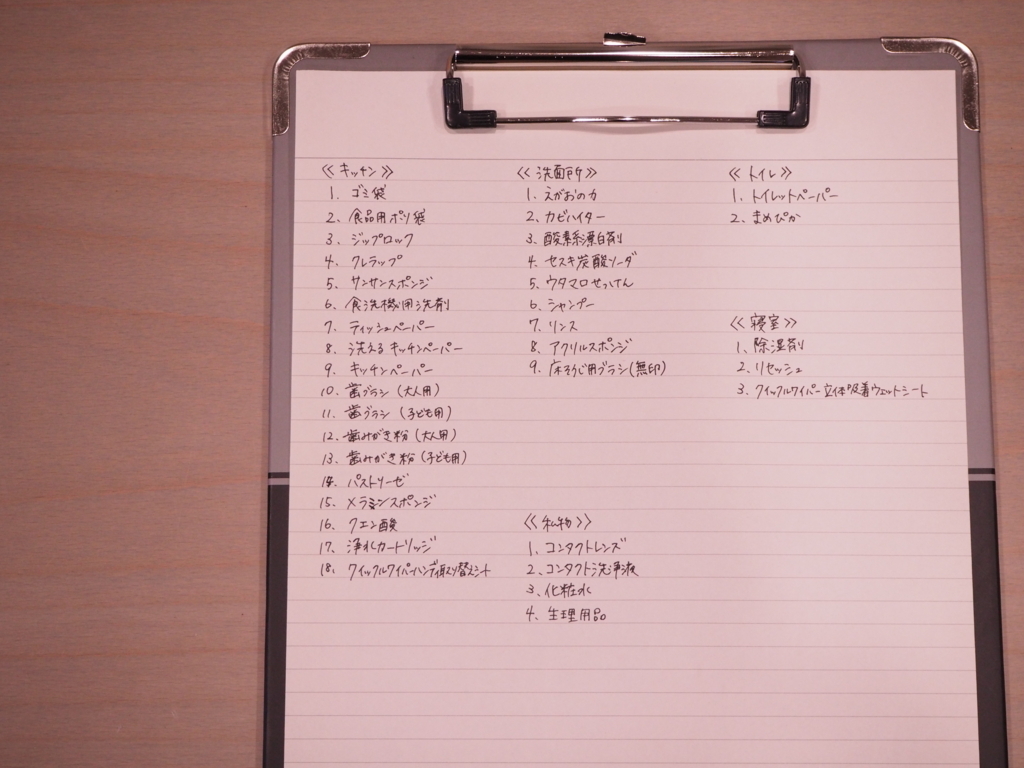 《キッチン》
1. ゴミ袋
2. 食品用ポリ袋
3. ジップロック
4. クレラップ
5. サンサンスポンジ
6. 食洗機用洗剤
7. ティッシュペーパー
8. 洗えるキッチンペーパー
9. キッチンペーパー
10. 歯ブラシ(大人用)
11. 歯ブラシ(子ども用)
12. 歯みがき粉(大人用)
13. 歯みがき粉(子ども用)
14. パストリーゼ
15. メラミンスポンジ
16. クエン酸
17. 浄水カートリッジ
18. クイックルワイパーハンディ取り替えシート
《洗面所》
1. えがおの力
2. カビハイター
3. 酸素系漂白剤
4. セスキ炭酸ソーダ
5. ウタマロせっけん
6. シャンプー
7. リンス
8. アクリルスポンジ
9. 床そうじ用ブラシ(無印)
《私物》
1. コンタクトレンズ
2. コンタクト洗浄液
3. 化粧水
4. 生理用品
《トイレ》
1. トイレットペーパー
2. まめピカ
《寝室》
1. 除湿剤
2. リセッシュ
3. クイックルワイパー立体吸着ウェットシート